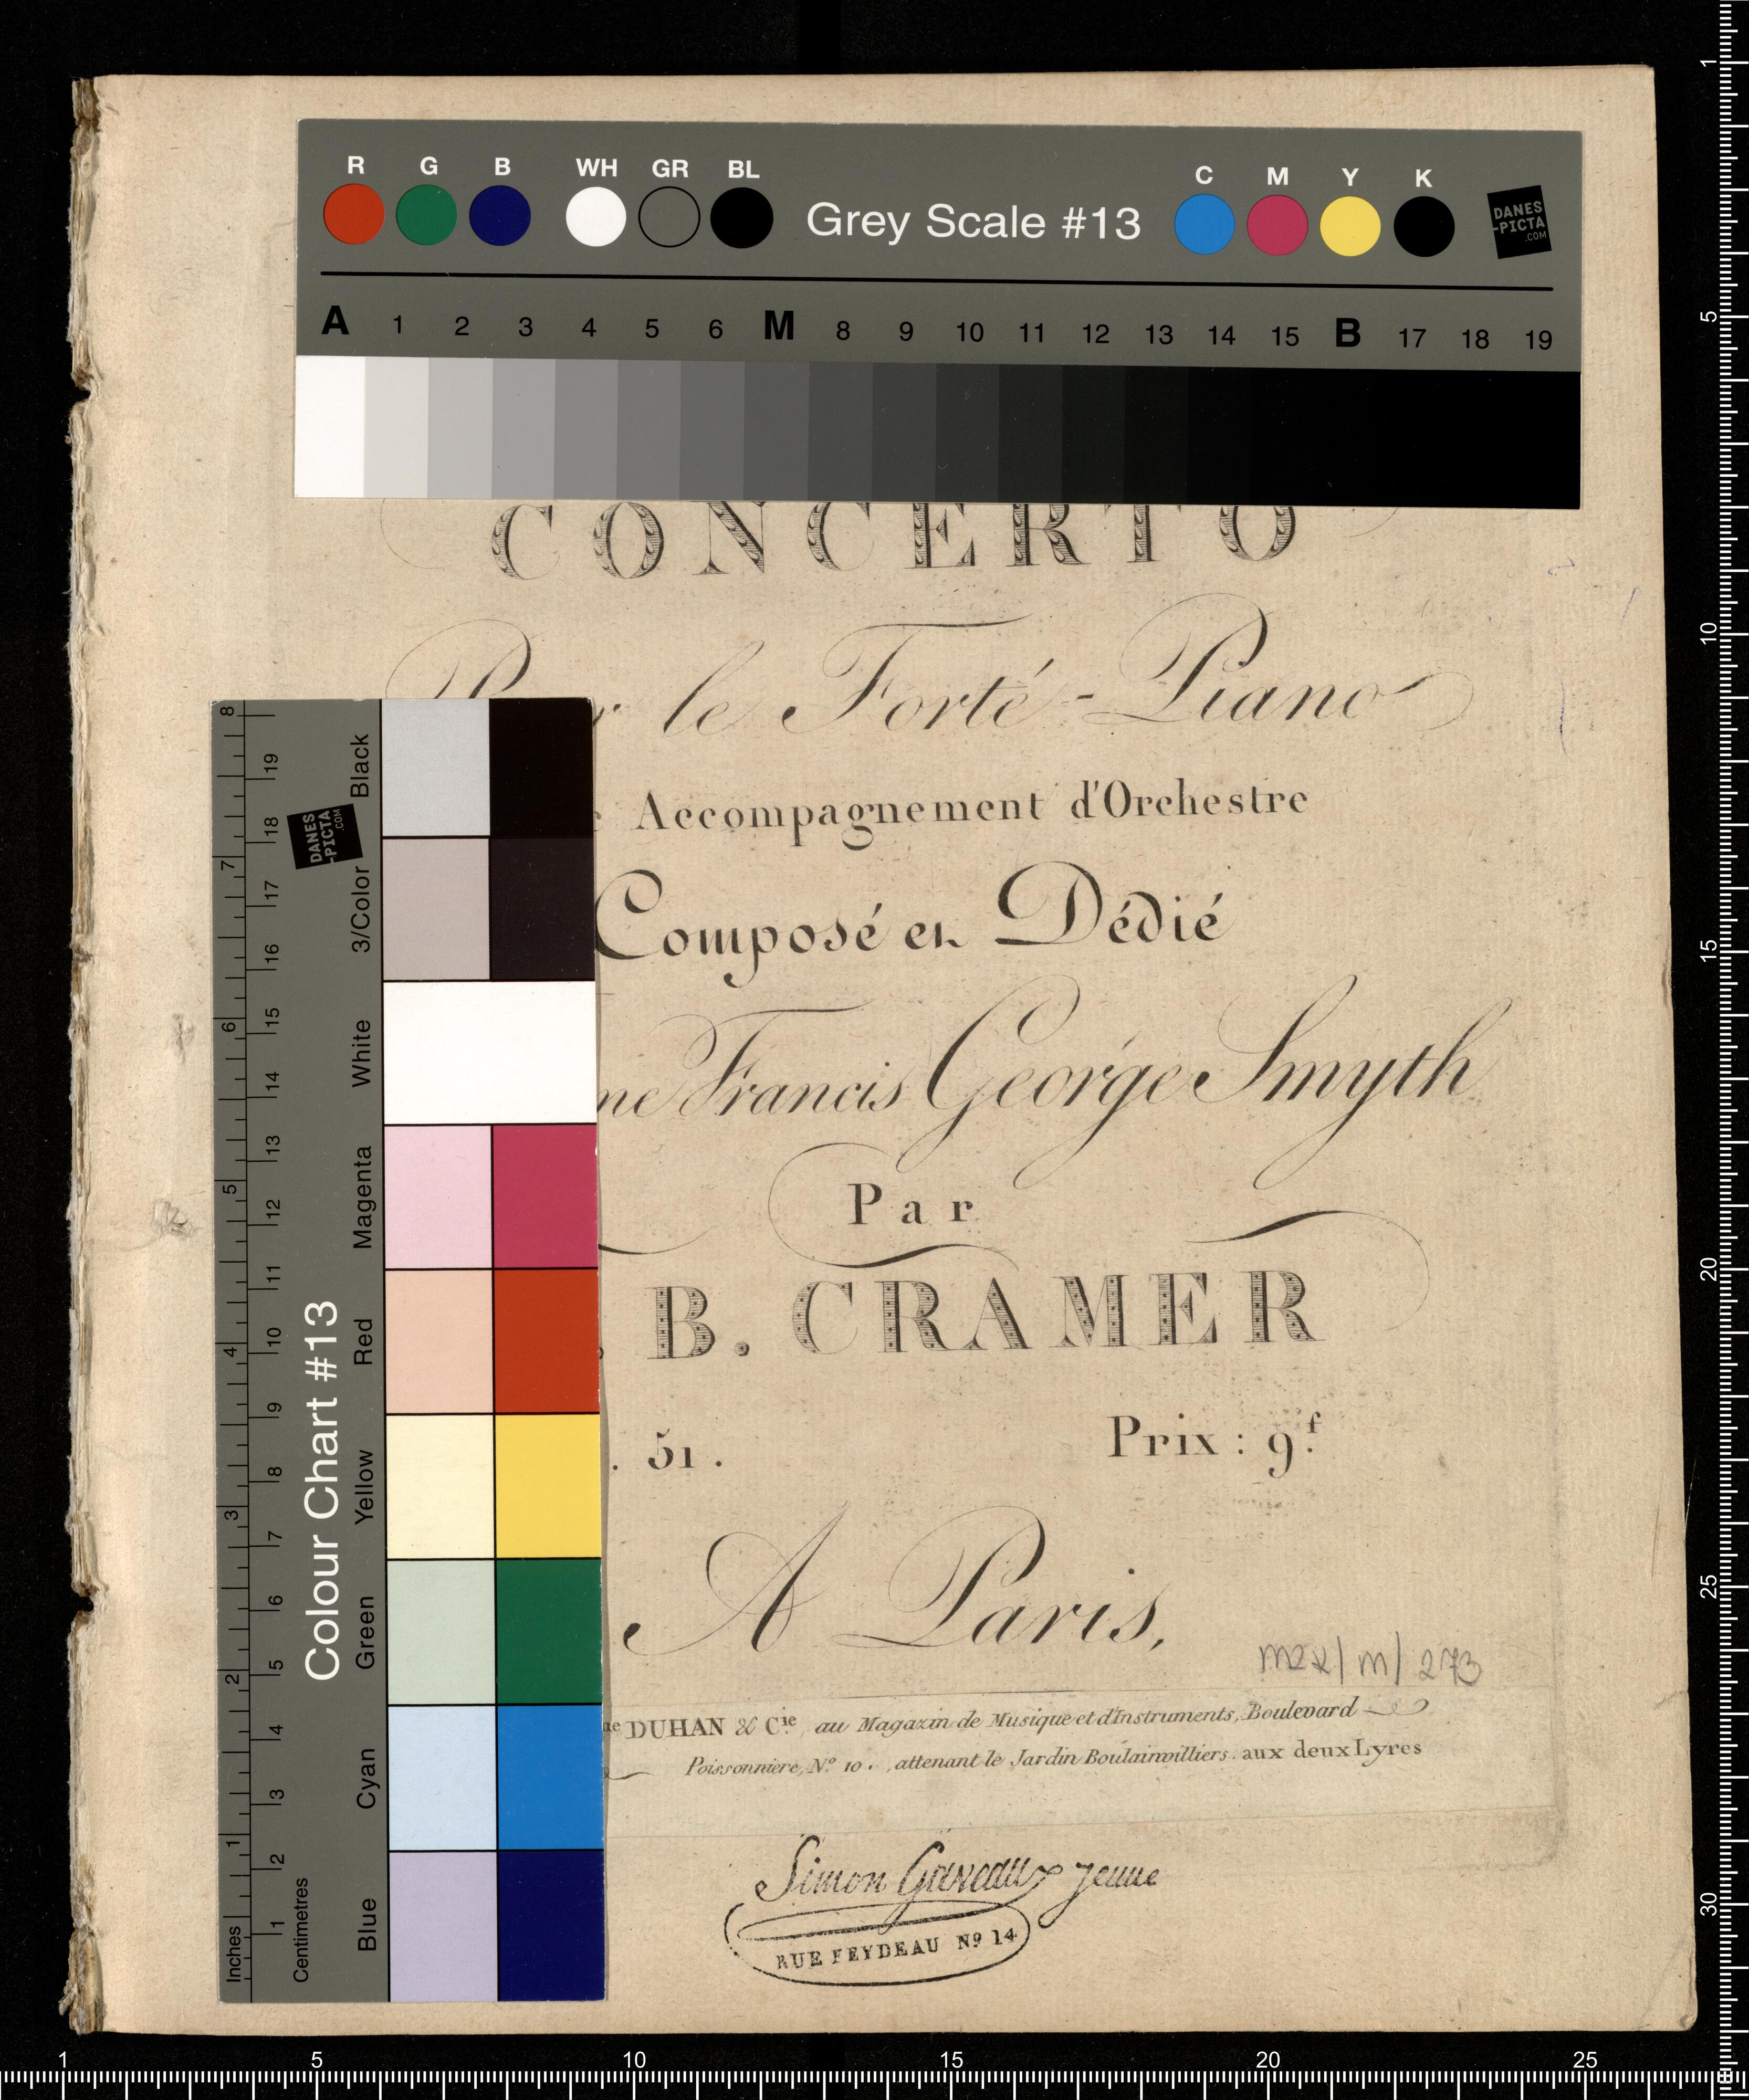 R G B WH GR BL Grey Scale #13 C M Y K DANES-PICTA.COM
A 1 2 3 4 5 6 M 8 9 10 11 12 13 14 15 B 17 18 19
CONCERTO
le Forté-Piano
Accompagnement d'Orchestre
Composé et Dédié
Francis George Smyth
Par
B. CRAMER
. 51. Prix: 9.f
A Paris,
m2x/m/273
DUHAN & Cie au Magazin de Musique et d'Instruments, Boulevard
Poissonniere, No. 10. attenant le Jardin Boulainvilliers. aux deux Lyres
Simon Gaveaux jeune
RUE FEYDEAU No 14
Colour Chart #13
DANES-PICTA.COM
Black
3/Color
White
Magenta
Red
Yellow
Green
Cyan
Blue
Inches 1 2 3 4 5 6 7 8
Centimetres 1 2 3 4 5 6 7 8 9 10 11 12 13 14 15 16 17 18 19
1 5 10 15 20 25 30
1 5 10 15 20 25